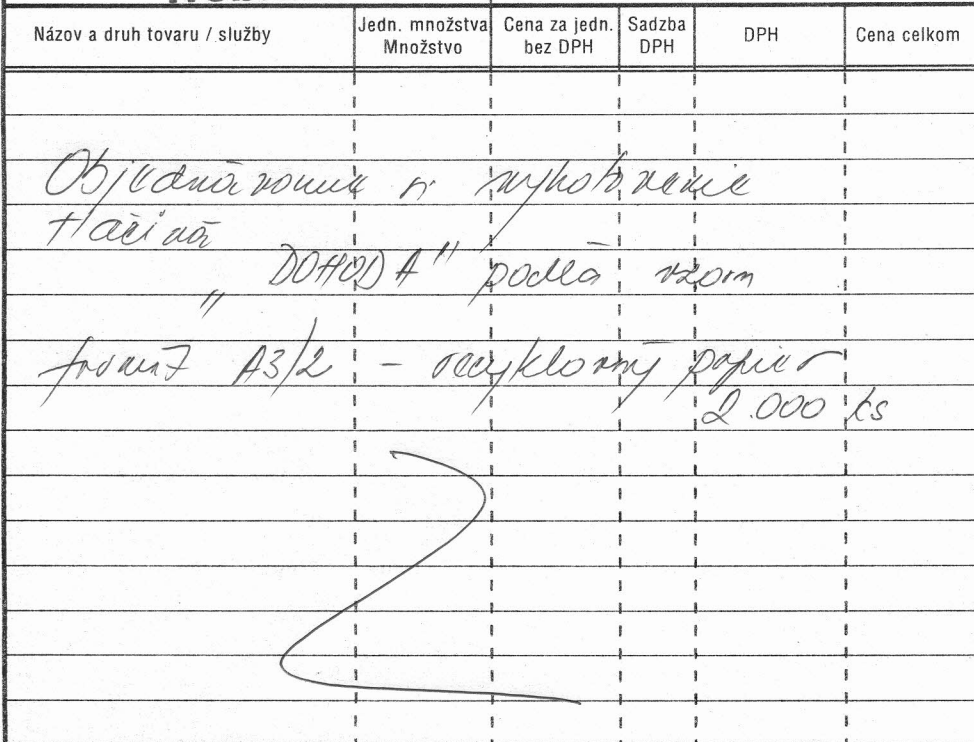 Názov a druh tovaru / služby
Jedn. množstva
Množstvo
Cena za jedn.
bez DPH
Sadzba
DPH
DPH
Cena celkom
Objednávame si vyhotovenie
tlačiva
„DOHODA" podľa vzoru
formát A3/2 - recyklovný papier
2.000 ks